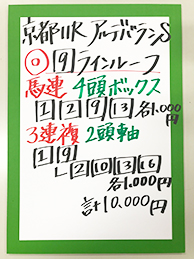 京都11R アルデバランS
◎ 9 ラインルーフ
馬連 4頭ボックス
1 2 9 13 各1.000円
3連複 2頭軸
1 9
2 10 13 16
各1.000円
計10.000円